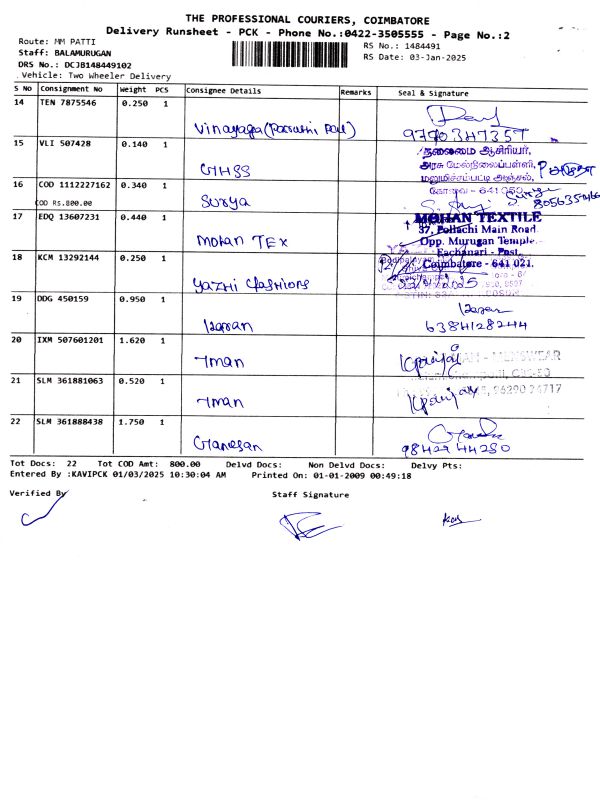 THE PROFESSIONAL COURIERS, COIMBATORE
Delivery Runsheet - PCK - Phone No.:0422-3505555 - Page No.:2
Route: MM PATTI
RS No.: 1484491
Staff: BALAMURUGAN
RS Date: 03-Jan-2025
DRS No.: DCJB148449102
Vehicle: Two Wheeler Delivery
S No Consignment No Weight PCS Consignee Details Remarks Seal & Signature
14 TEN 7875546 0.250 1
Vinayaga
15 VLI 507428 0.140 1
தலைமை ஆசிரியர்,
அரசு மேல்நிலைப்பள்ளி,
மலுமிச்சம்பட்டி அஞ்சல்,
GHSS
கோவை - 641 050
16 COD 1112227162 0.340 1
COD Rs.800.00
Surya
17 EDQ 13607231 0.440 1
MOHAN TEXTILE
37, Pollachi Main Road
Opp. Murugan Temple
Eachanari - Post,
Coimbatore - 641 021.
Mohan Tex
18 KCM 13292144 0.250 1
Yazhi Fashions
19 DDG 450159 0.950 1
6384128244
20 IXM 507601201 1.620 1
Iman
MENSWEAR
21 SLM 361881063 0.520 1
96290 24717
Iman
22 SLM 361888438 1.750 1
Ganesan
9842944280
Tot Docs: 22 Tot COD Amt: 800.00 Delvd Docs: Non Delvd Docs: Delvy Pts:
Entered By :KAVIPCK 01/03/2025 10:30:04 AM Printed On: 01-01-2009 00:49:18
Verified By Staff Signature